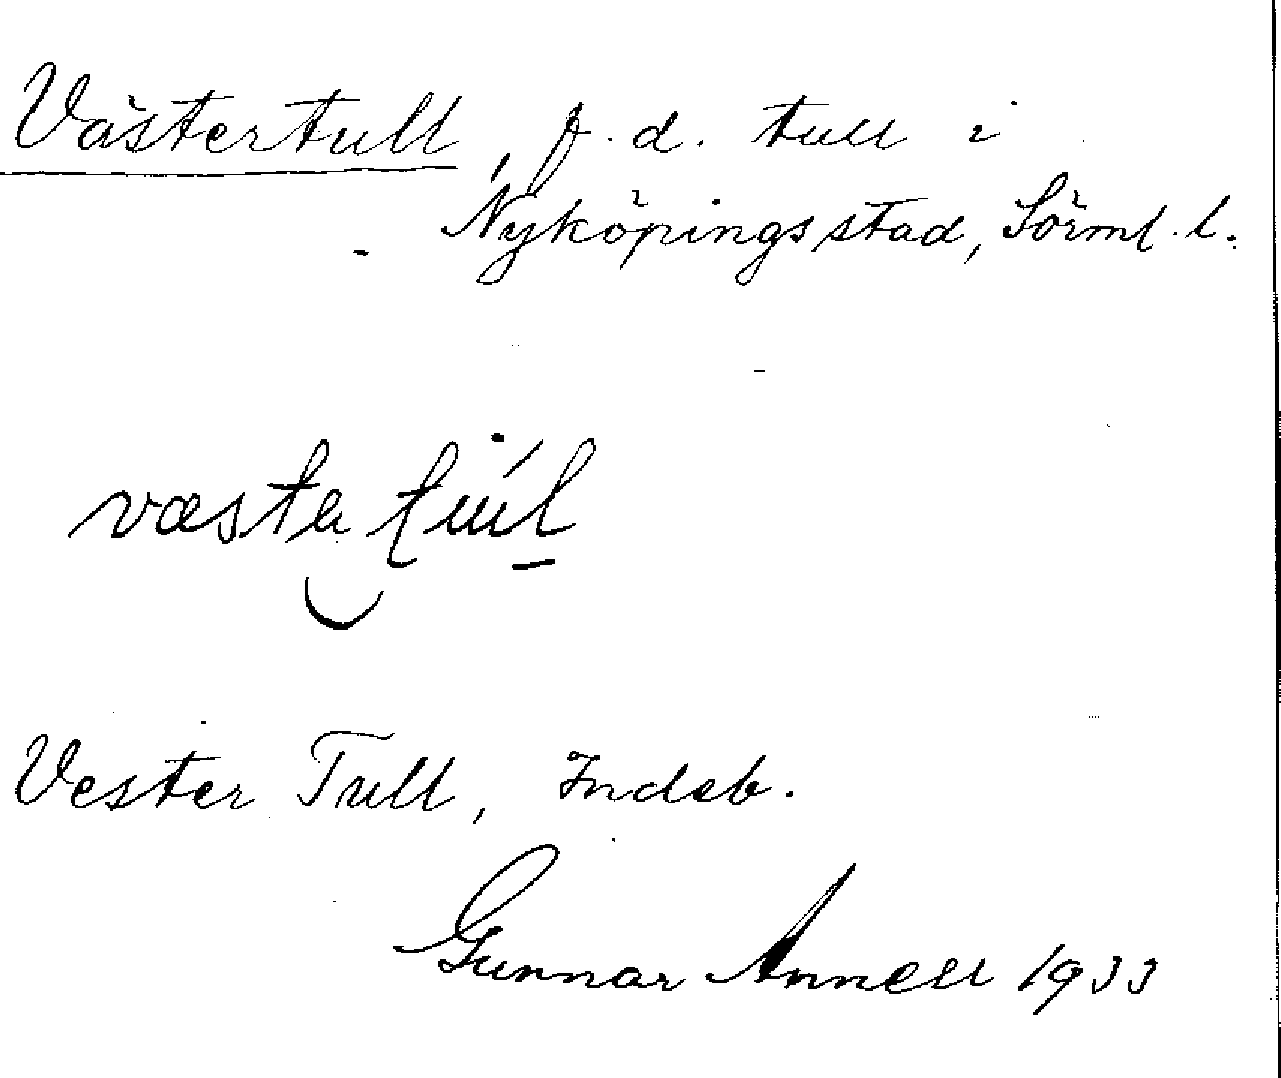 Västertull, f.d. tull i
Nyköpings stad, Sörml. l.
væsta tul
Vester Tull, Indeb.
Gunnar Annell 1933